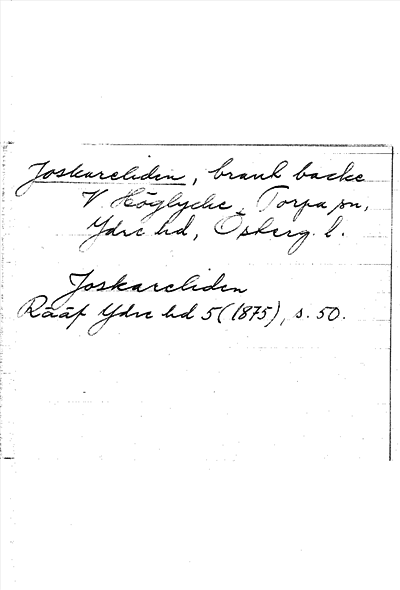 Joskareliden, brant backe
V. Höglycke, Torpa sn,
Ydre hd, Ösherg. l.

Joskareliden
Rääf Ydre hd 5 (1875), s. 50.